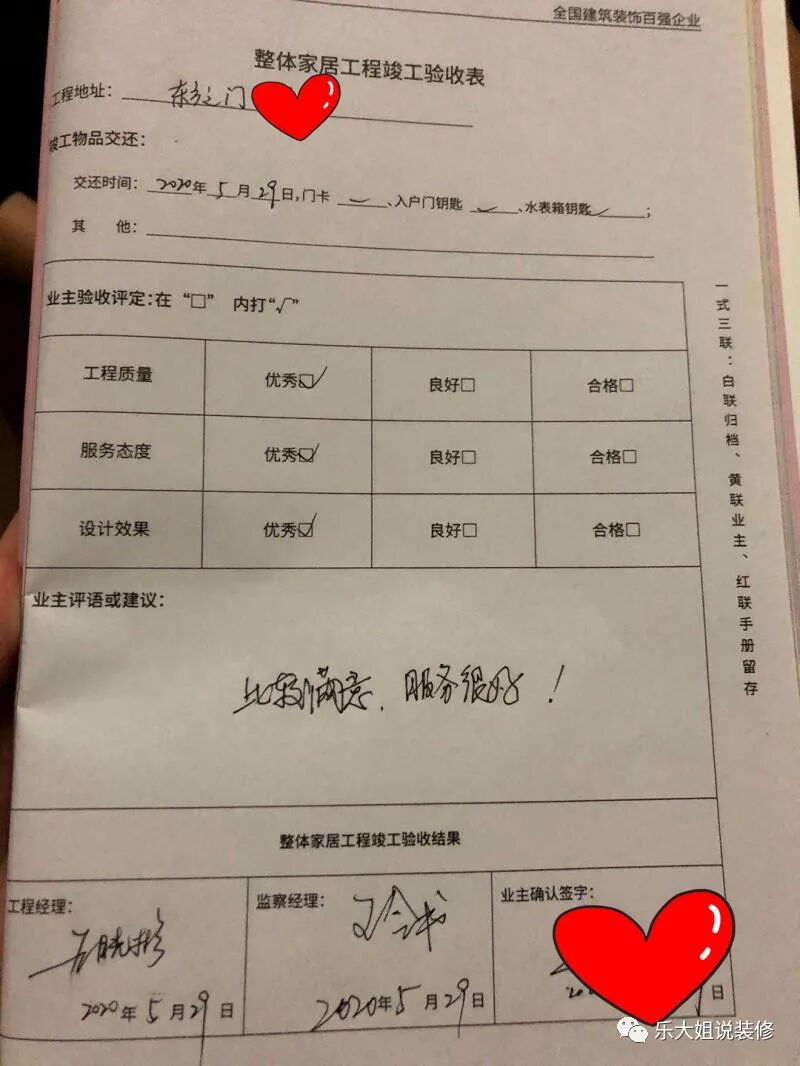 全国建筑装饰百强企业
整体家居工程竣工验收表
工程地址： 东方之门
竣工物品交还：
交还时间： 2020年 5 月 29 日,门卡 ✓ 、入户门钥匙 ✓ 、水表箱钥匙 ✓ ；
其 他：
业主验收评定：在 “□” 内打“√”
工程质量 优秀☑ 良好□ 合格□
服务态度 优秀☑ 良好□ 合格□
设计效果 优秀☑ 良好□ 合格□
业主评语或建议：
比较满意，服务很好！
整体家居工程竣工验收结果
工程经理： 监察经理： 业主确认签字：
2020年 5 月 29 日 2020年 5 月 29 日 日
一式三联：白联归档、黄联业主、红联手册留存
乐大姐说装修